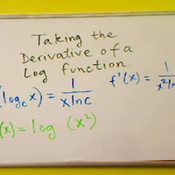 Taking the
Derivative of a
Log function
(log_c x) = 1/(x ln c)
f'(x) = 1/(x² ln
(x) = log (x²)